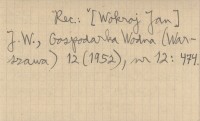 Rec.: "[Wokroj Jan]
J.W., Gospodarka Wodna (War-
szawa) 12 (1952), nr 12: 474.